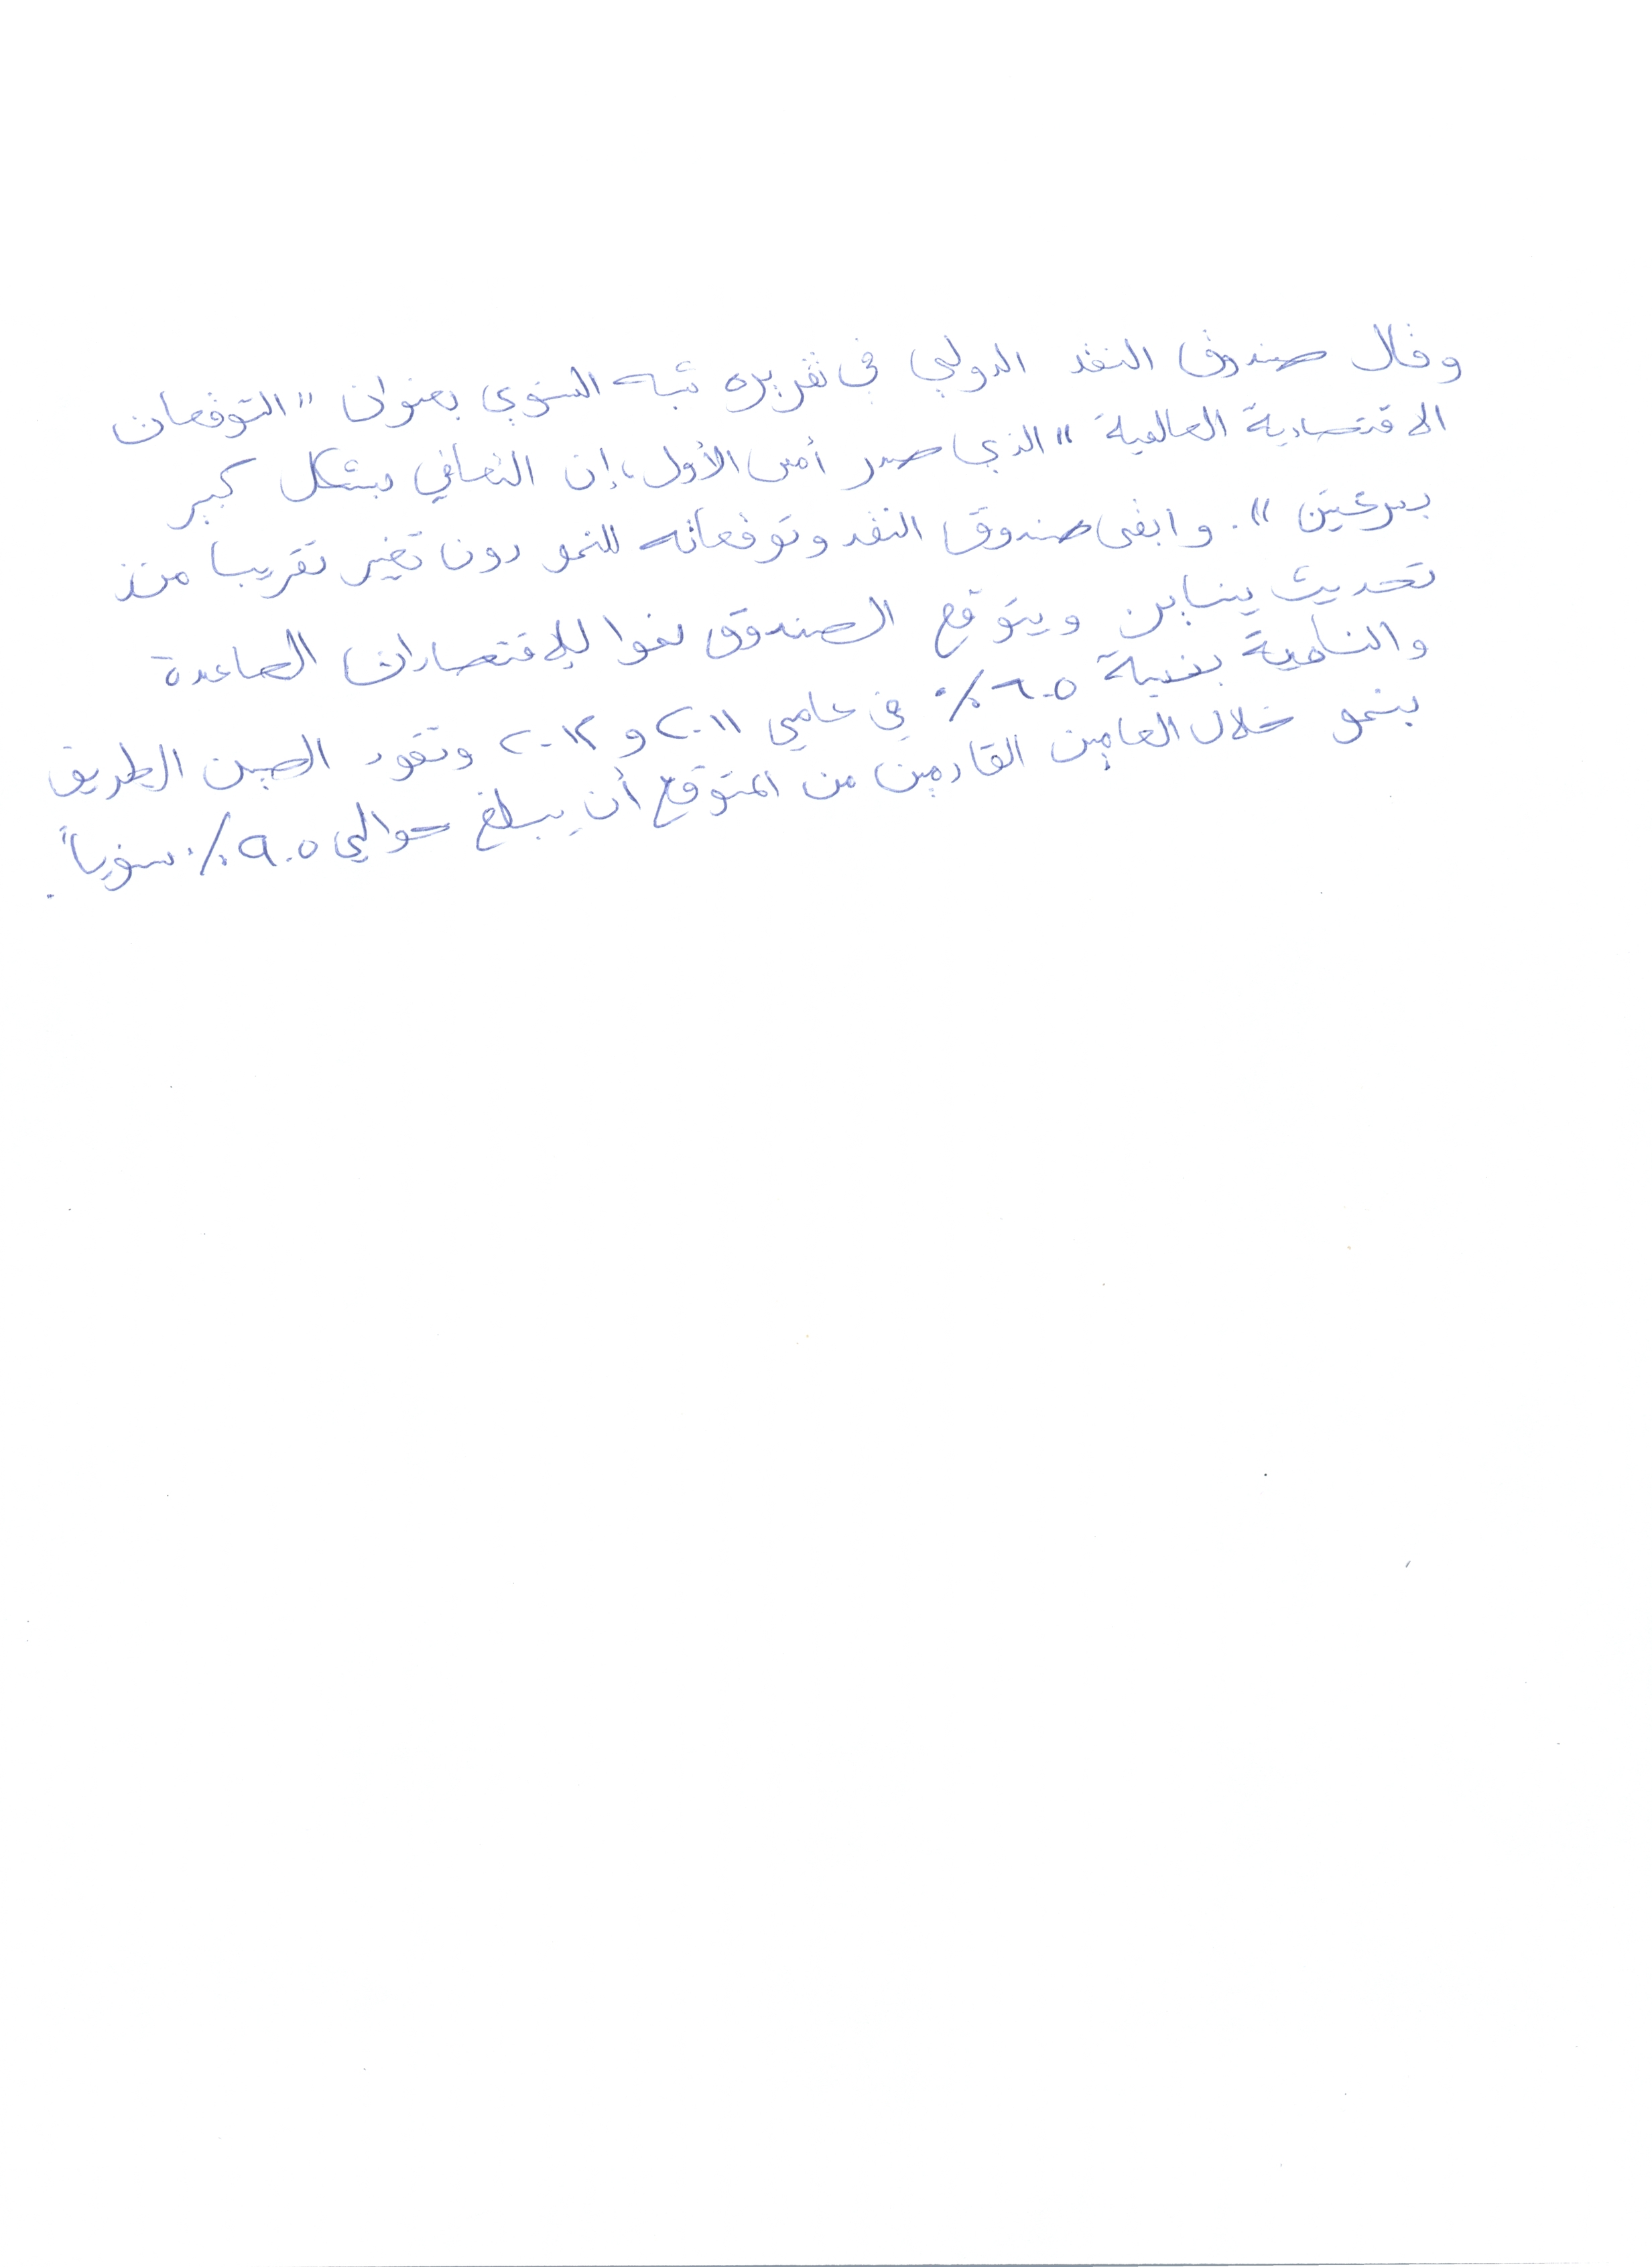 وقال صندوق النقد الدولي في تقريره شبه السنوي بعنوان "التوقعات
الاقتصادية العالمية" الذي صدر أمس الأول، إن التعافي وبشكل كبير
بسرعتين". وابقى صندوق النقد وتوقعاته للنمو دون تغير تقريبا منذ
تحديث يناير، ويتوقع الصندوق نموا للاقتصادات الصاعدة
والنامية بنسبة ٦.٥٪ في عامي ٢٠١١ و٢٠١٢ وتقود الصين الطريق
بنمو خلال العامين القادمين من المتوقع أن يبلغ حوالي ٩.٥٪ سنوياً.